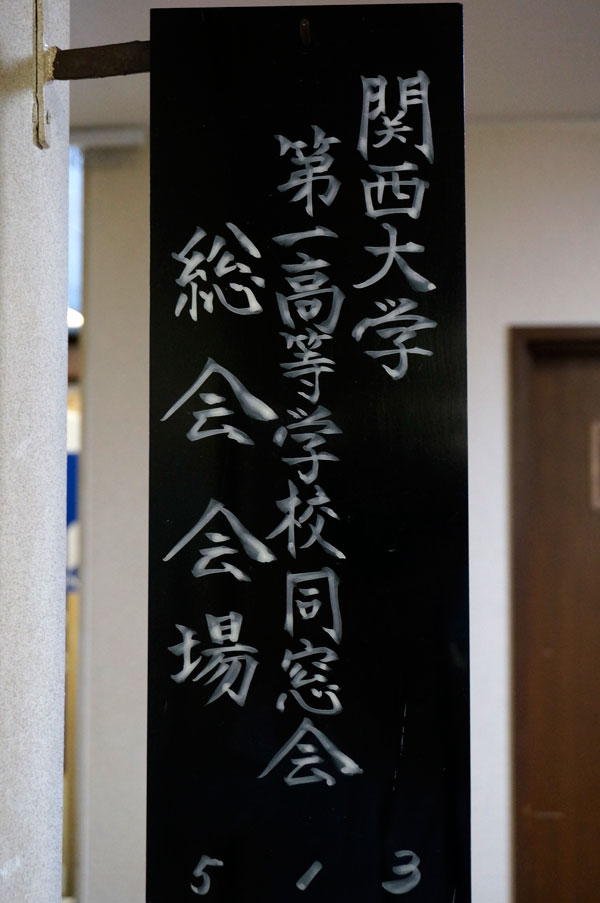 関西大学
第一高等学校同窓会
総会会場
5 1 3